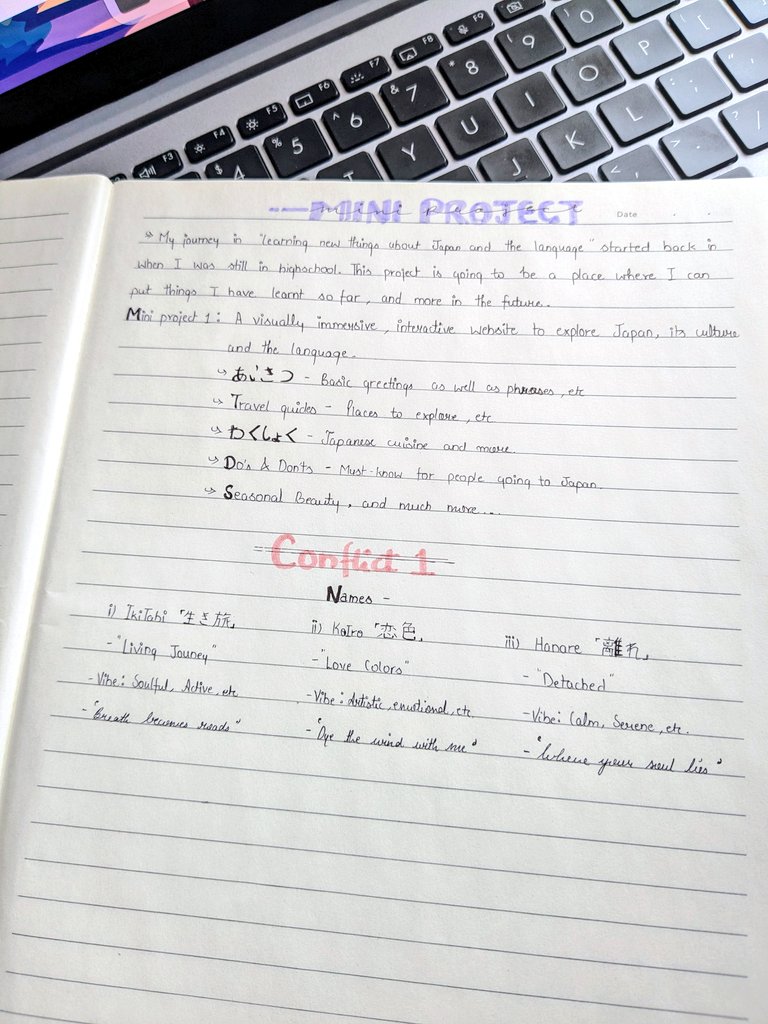 F3 F4 F5 F6 F7 F8 F9
$ 4 % 5 ^ 6 & 7 * 8 ( 9 ) O
T Y U I O P [
J K L : ; " '
< , > . ? /
MINI PROJECT
mini project
Date . .
My journey in "learning new things about Japan and the language" started back in
when I was still in highschool. This project is going to be a place where I can
put things I have learnt so far, and more in the future.
Mini project 1: A visually immersive, interactive website to explore Japan, its culture
and the language.
あいさつ - Basic greetings as well as phrases, etc
Travel guides - Places to explore, etc
わくしょく - Japanese cuisine and more.
Do's & Donts - Must-know for people going to Japan.
Seasonal Beauty, and much more...
Conflict 1
Names -
i) IkiTabi 「生き旅」
- "Living Jouney"
- Vibe: Soulful, Active, etc
- "Breath becomes roads"
ii) KoIro 「恋色」
- "Love Colors"
- Vibe: Artistic, emotional, etc.
- "Dye the wind with me"
iii) Hanare 「離れ」
- "Detached"
- Vibe: Calm, Serene, etc.
- "Where your soul lies"